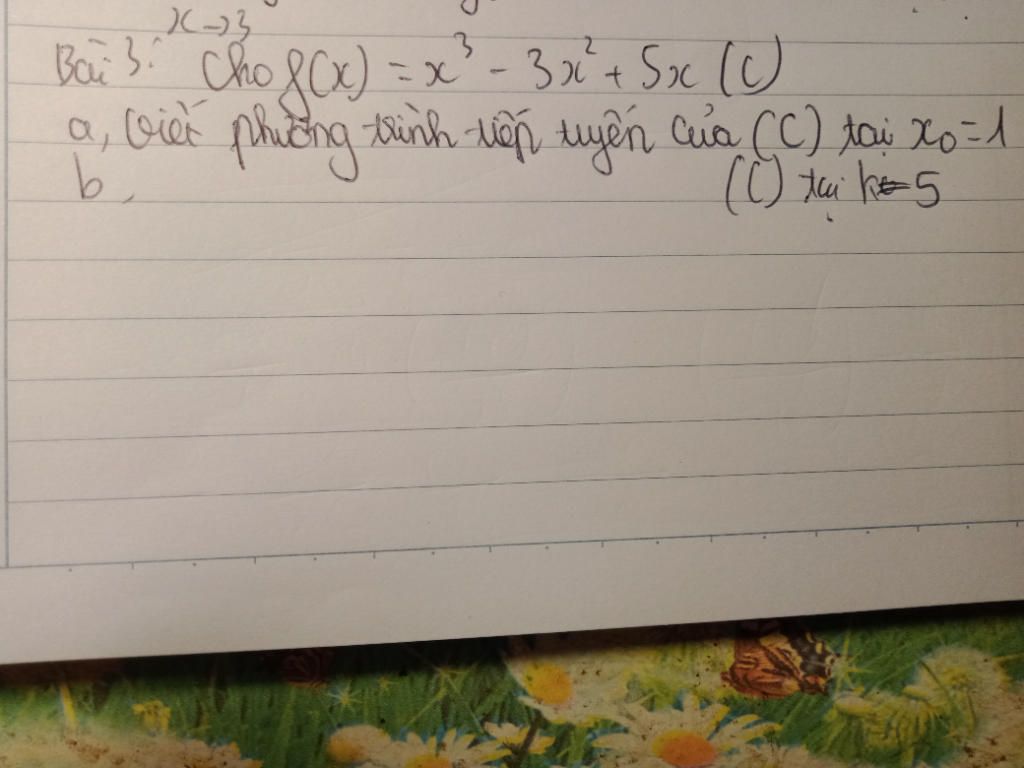 x→3
Bài 3: Cho f(x) = x³ - 3x² + 5x (C)
a, Viết phương trình tiếp tuyến của (C) tại x₀ = 1
b, (C) tại k=5